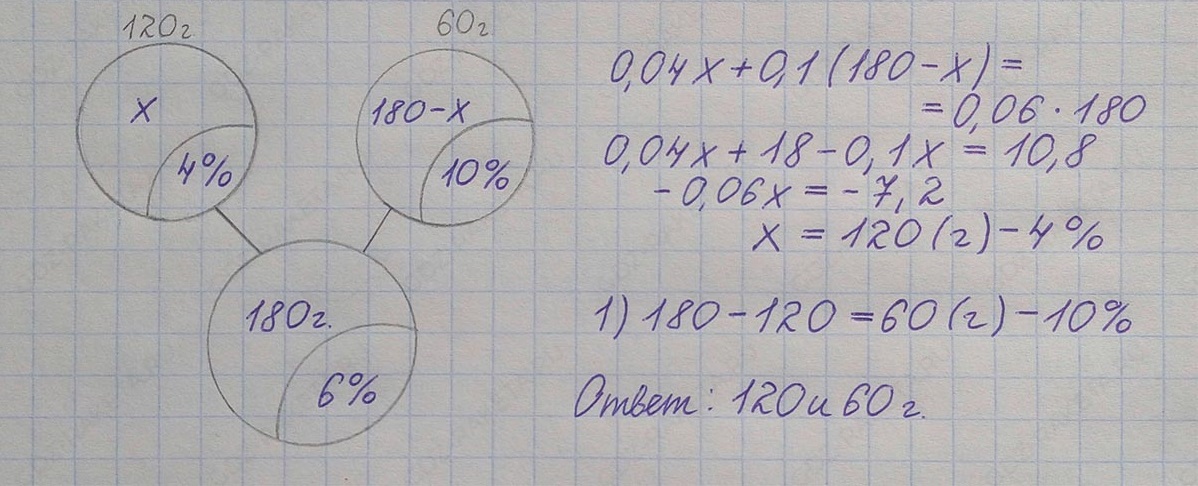 120г
60г
x
180-x
4%
10%
180г.
6%
0,04x+0,1(180-x)=
=0,06·180
0,04x+18-0,1x=10,8
-0,06x=-7,2
x=120(г)-4%
1)180-120=60(г)-10%
Ответ: 120 и 60г.